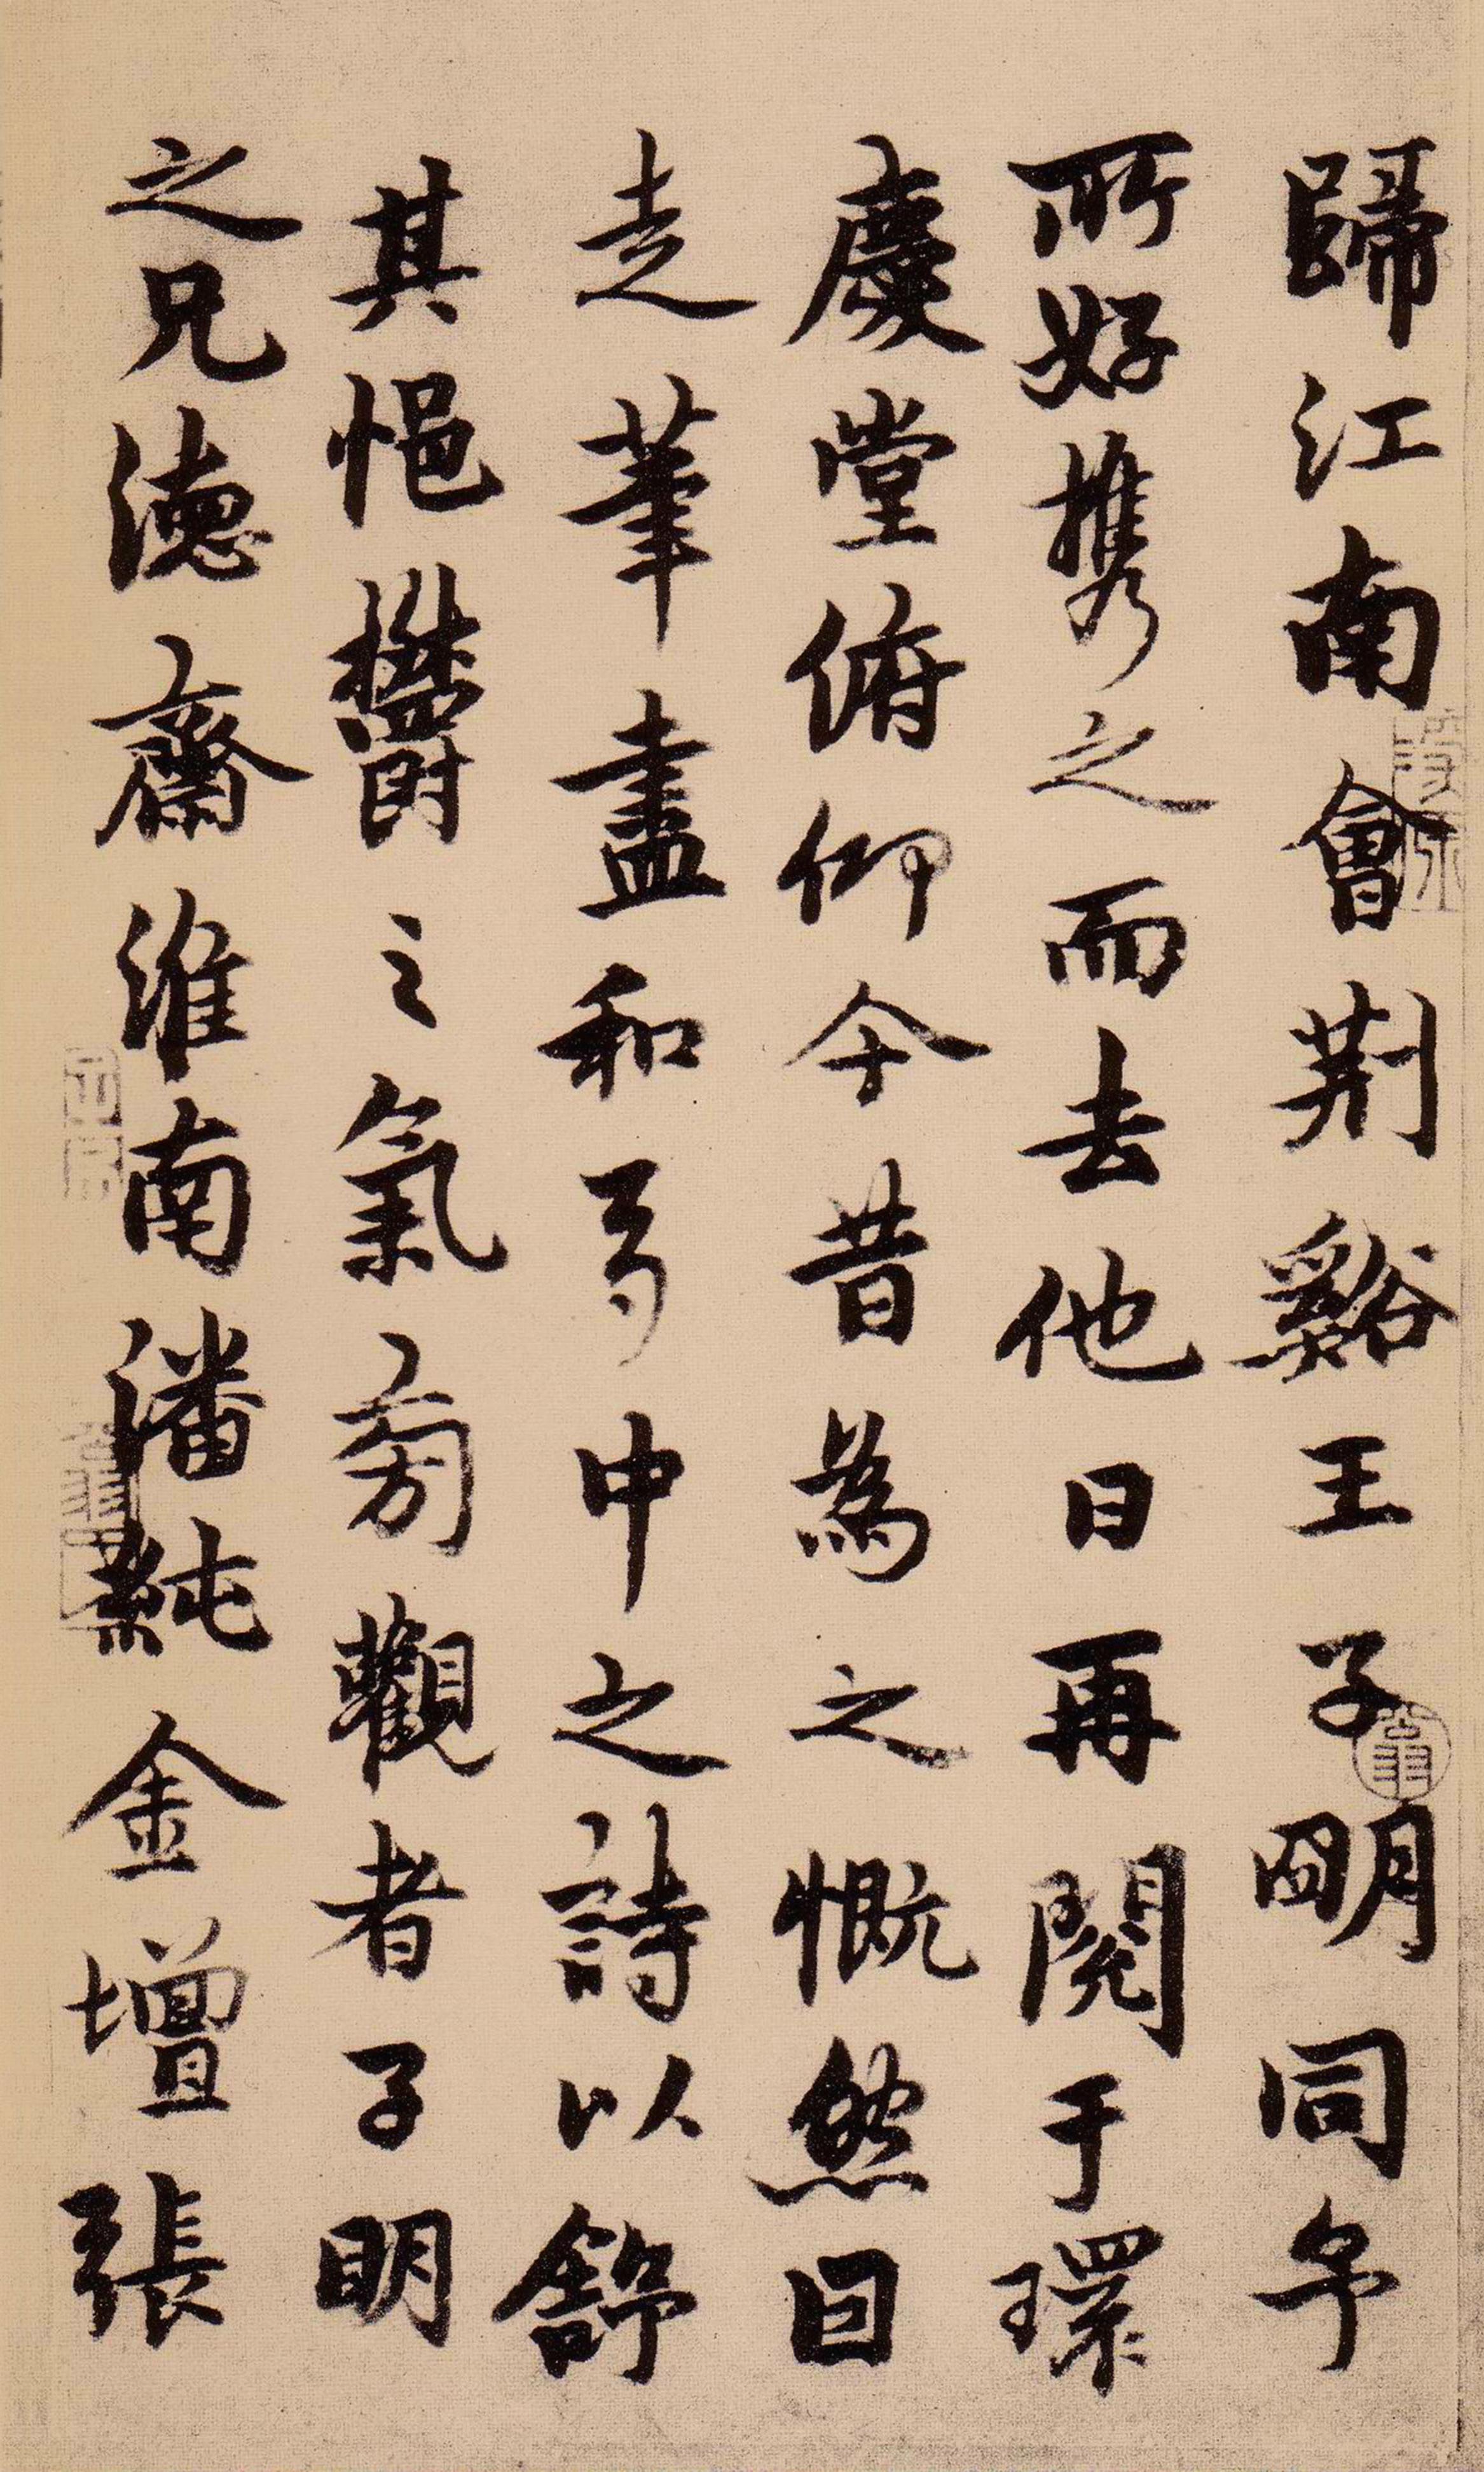 歸江南會荆谿王子明同予
所好攜之而去他日再閱于環
慶堂俯仰今昔為之慨然因
走筆盡和卷中之詩以舒
其悒欝之氣旁觀者子明
之兄德齋淮南潘純金壇張